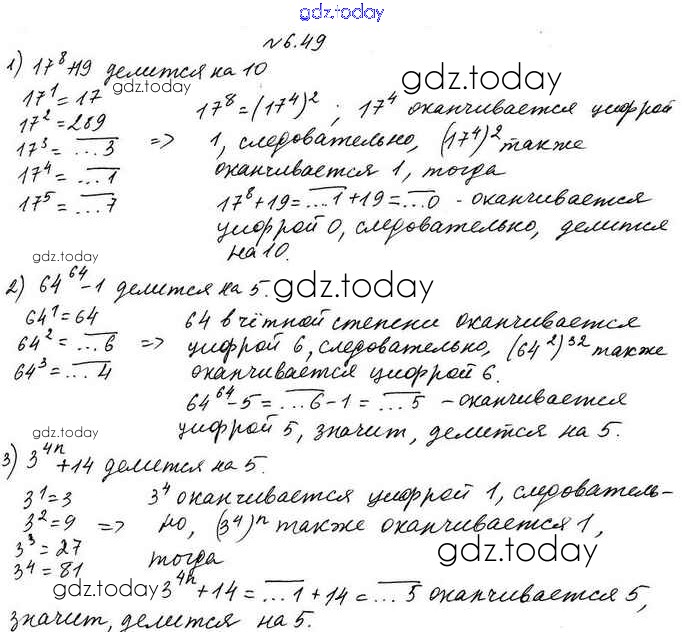 gdz.today
№6.49
1) 17⁸+19 делится на 10
gdz.today
gdz.today
17¹ = 17
17² = 289
17³ = ...3
17⁴ = ...1
17⁵ = ...7
=> 17⁸ = (17⁴)² ; 17⁴ оканчивается цифрой
1, следовательно, (17⁴)² также
оканчивается 1, тогда
17⁸+19 = ...1+19 = ...0 - оканчивается
цифрой 0, следовательно, делится
на 10.
gdz.today
2) 64⁶⁴-1 делится на 5.
gdz.today
64¹ = 64
64² = ...6
64³ = ...4
=> 64 в чётной степени оканчивается
цифрой 6, следовательно, (64²)³² также
оканчивается цифрой 6.
64⁶⁴-5 = ...6-1 = ...5 - оканчивается
цифрой 5, значит, делится на 5.
gdz.today
3) 3⁴ⁿ+14 делится на 5.
3¹ = 3
3² = 9
3³ = 27
3⁴ = 81
=> 3⁴ оканчивается цифрой 1, следователь-
но, (3⁴)ⁿ также оканчивается 1,
тогда
gdz.today
gdz.today
3⁴ⁿ+14 = ...1+14 = ...5 оканчивается 5,
значит, делится на 5.